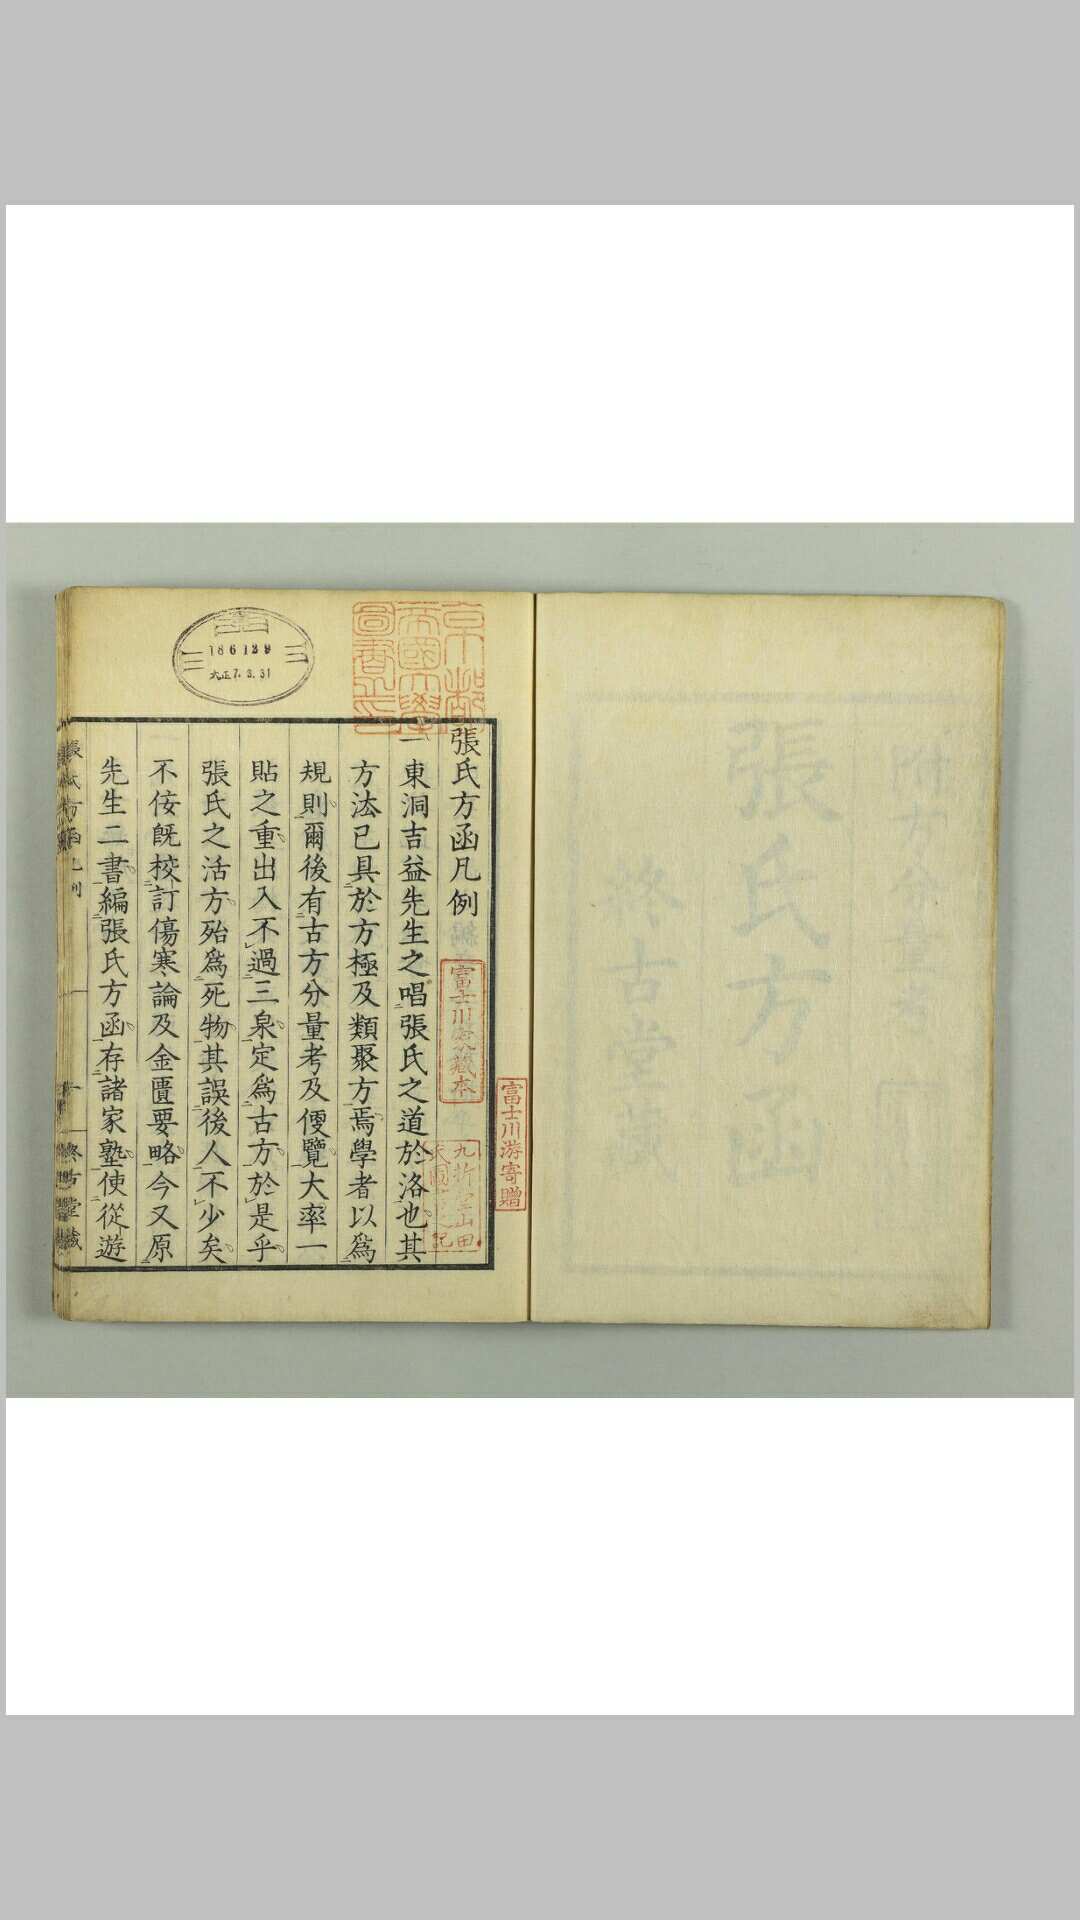 張氏方函凡例
一東洞吉益先生之唱張氏之道於洛也其
方法已具於方極及類聚方焉學者以爲
規則爾後有古方分量考及便覽大率一
貼之重出入不過三泉定爲古方於是乎
張氏之活方殆爲死物其誤後人不少矣
不佞既校訂傷寒論及金匱要略今又原
先生二書編張氏方函存諸家塾使從遊
張氏方函凡例
一
終古堂藏
京都
帝國大學
圖書之印
186129
大正7.3.31
富士川家藏本
富士川游寄贈
九折堂山田
張氏方函
終古堂藏